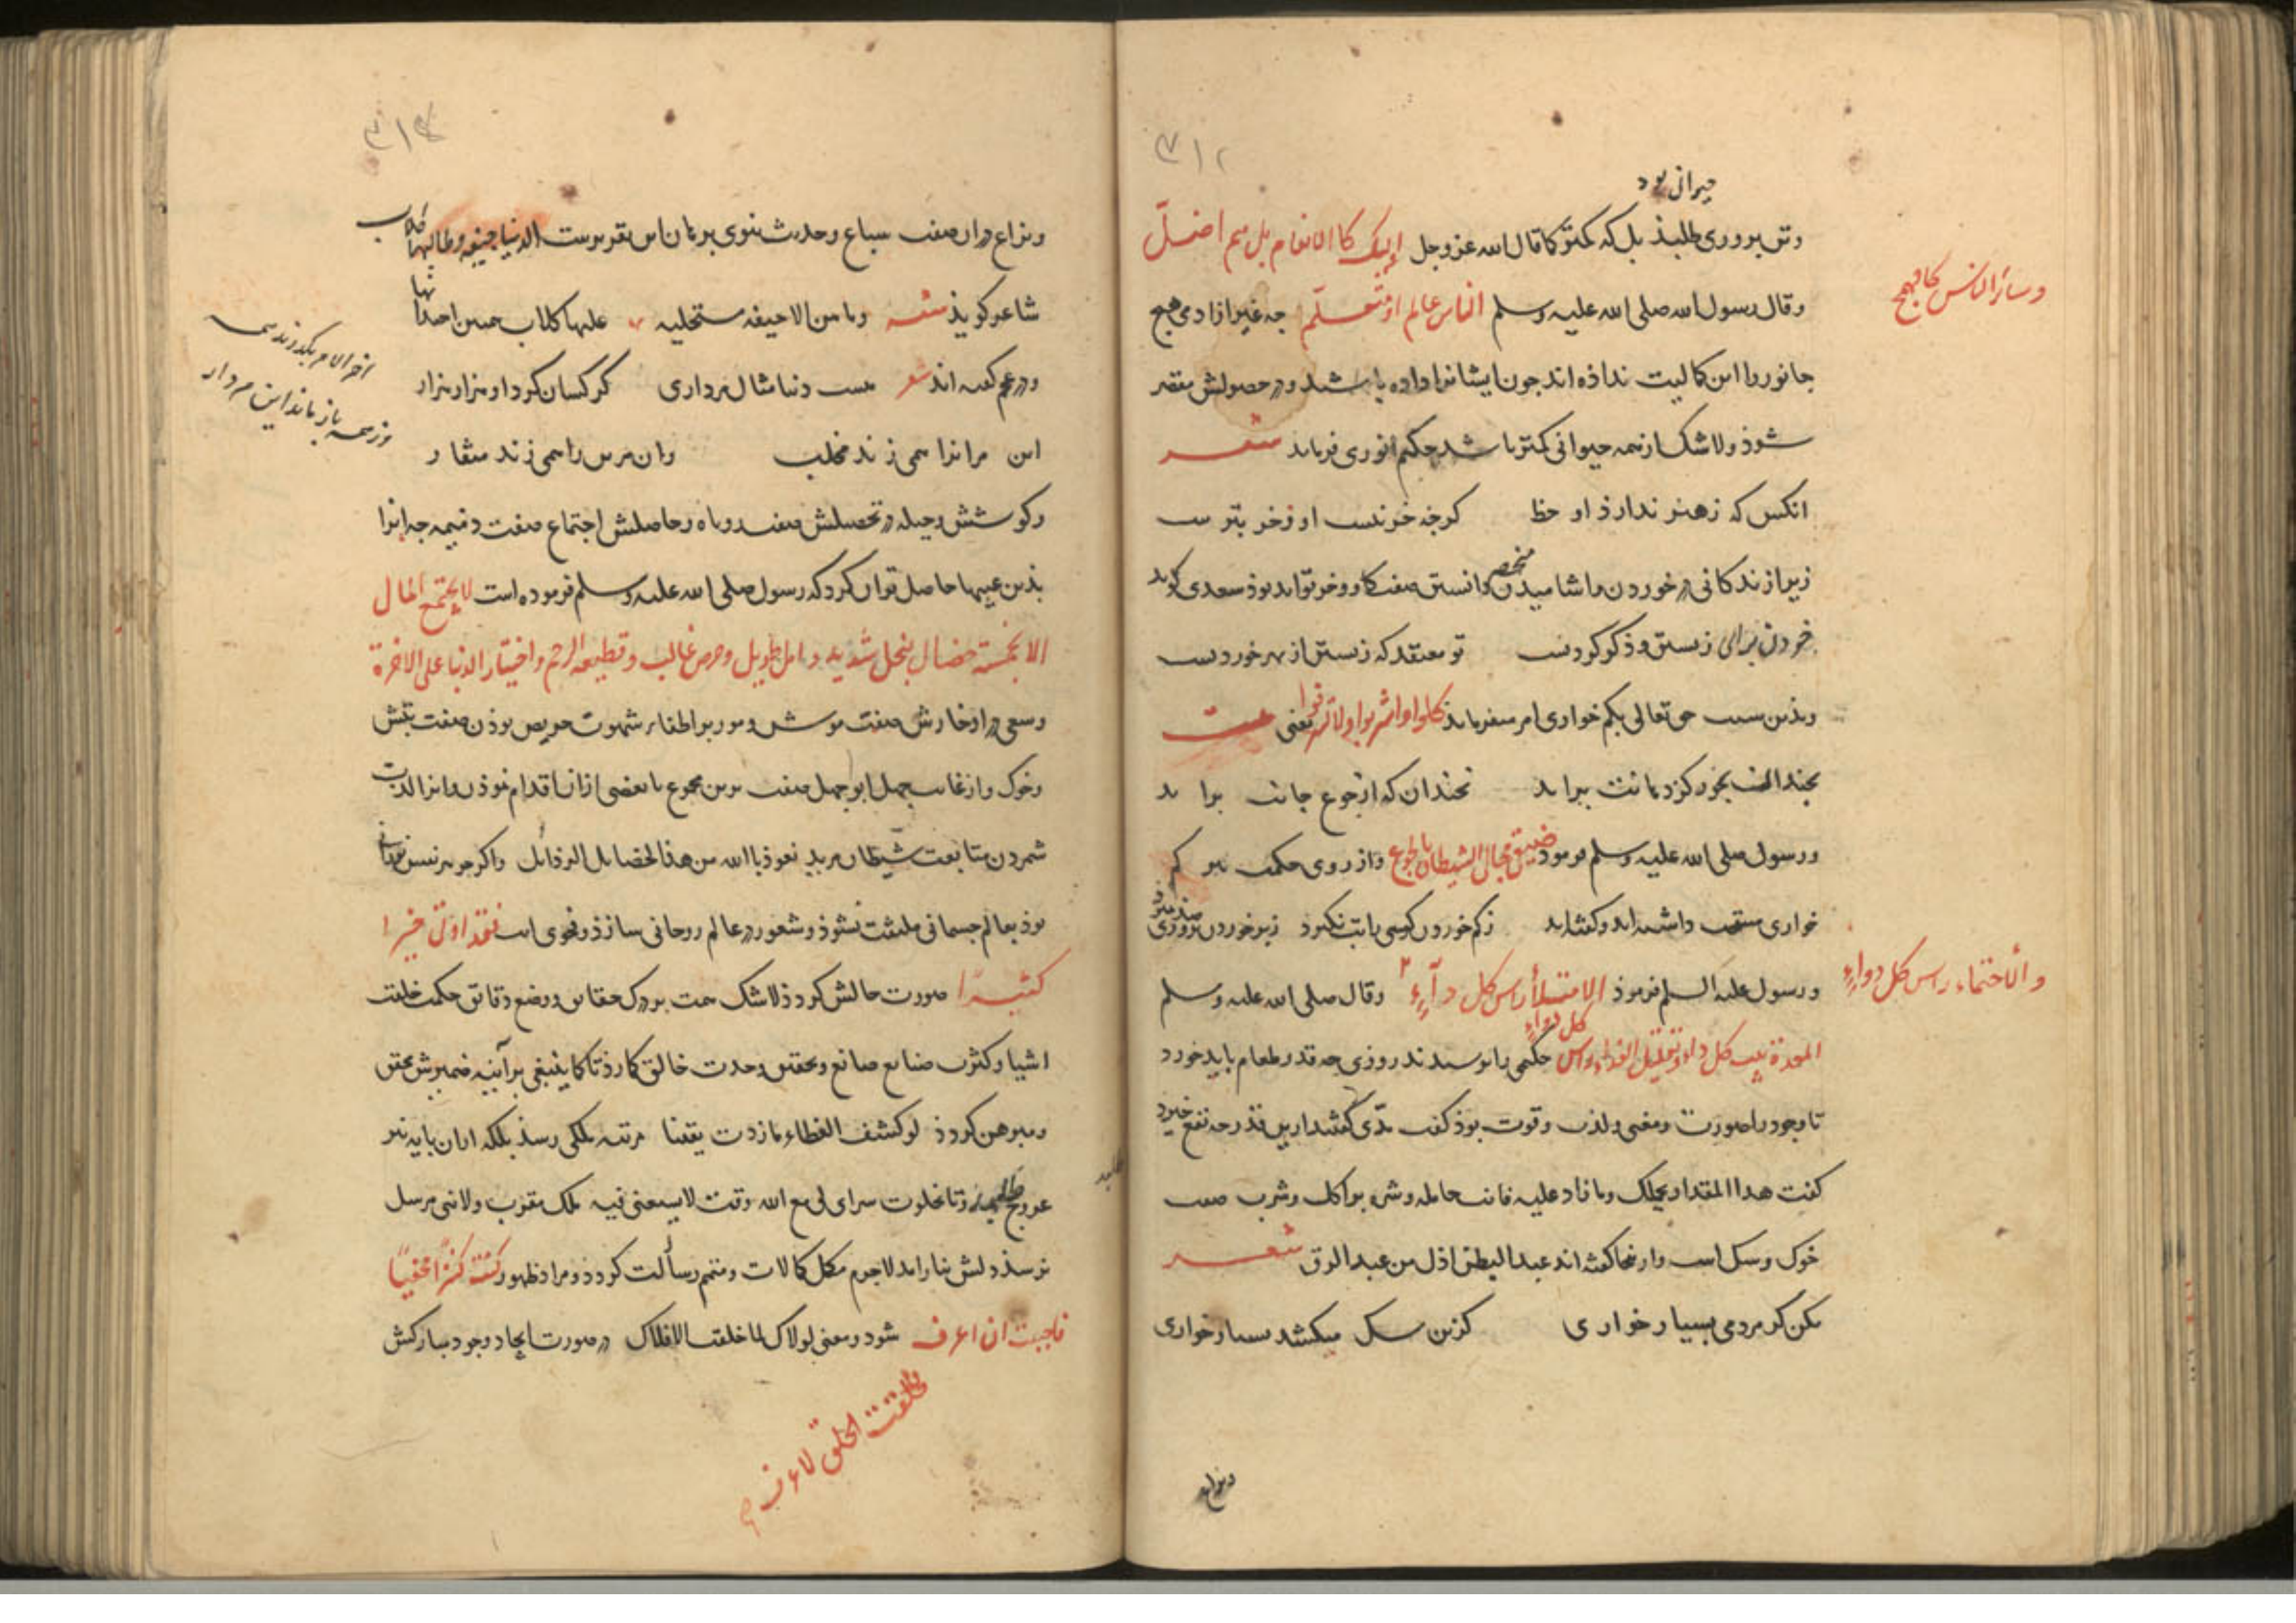 ۳۱۲
حیوانی بود
وتن پروری طلبذ بل که کمتر کما قال الله عز وجل اولیک کالانعام بل هم اضل
وقال رسول الله صلی الله علیه وسلم الناس عالم او متعلم جه غیر از ادمی هیچ
وسائر الناس کالهمج
جانور را این کمالیت نداذه اند جون ایشانرا داده باشند ودر حصولش مقصر
شوذ ولاشک از همه حیوانی کمتر باشد حکیم انوری فرماید شعر
انکس که زهنر ندارذ او حظ کرچه خر نیست او زخر بتر ست
زیرا زندکانی در خوردن واشامیدن منحصر دانستن صفت کاو وخر تواند بوذ سعدی کوید
خوردن برای زیستن وذکر کردنست تو معتقد که زیستن از بهر خوردنست
وبذین سبب حق تعالی بکم خواری امر میفرمایذ کلوا واشربوا ولا تسرفوا یعنی بیت
نجندان بخور کز دهانت براید نجندان که از جوع جانت براید
ورسول صلی الله علیه وسلم فرمود ضیق مجال الشیطان بالجوع واز روی حکمت نیز کم
خواری مستحب داشته اند وکفته اند زکم خوردن کسی را تب نکیرد زپر خوردن بروزی صد بمیرد
ورسول علیه السلم فرموذ الامتلأ راس کل دآء وقال صلی الله علیه وسلم
والاحتماء راس کل دواء
المعدة بیت کل داء وتقلیل الغذاء راس کل دواء حکیمی را پرسیدند روزی جه قدر طعام باید خورد
تا وجود را صورت ومعنی ولذت وقوت بوذ کفت کفتند این قدر جه نفع
کفت هذا المقدار یحملک وما زاد علیه فانت حامله وشره بر اکل وشرب صفت
خوک وسک است وازینجا کفته اند عبد البطن اذل من عبد الرق شعر
مکن کر مردمی بسیار خواری کزین سک میکشد بسیار خواری
۳۱۳
ونزاع در ان صفت سباع وحدیث نبوی برهان این تقریرست الدنیا جیفة وطالبها کلاب
شاعر کویذ شعر وما هی الا جیفة مستحیلة علیها کلاب همهن اجتذابها
ودر عجم کفته اند شعر هست دنیا مثال مرداری کرکسان کرد او هزار هزار
این مرانرا همی زند مخلب وان مرین را همی زند منقار
اخر الامر بکذرند همه
وز همه باز ماند این مردار
وکوشش وحیله در تحصیلش صفت روباه وحاصلش اجتماع صفت ذمیمه جه انرا
بذین عیبها حاصل توان کرد که رسول صلی الله علیه وسلم فرموده است لا یجتمع المال
الا بخمسة خصال بخل شدید وامل طویل وحرص غالب وقطیعه الرحم واختیار الدنیا علی الاخرة
وسعی در ادخارش صفت موش ومور وبر اطفاء شهوت حریص بوذن صفت
وخوک واز غایت جهل ابوجهل صفت برین مجموع یا بعضی از ان اقدام نموذن وانرا لذت
شمردن متابعت شیطان مرید نعوذ بالله من هذا الخصایل الرذائل واکر جوهر نفس
بوذ بعالم جسمانی ملتفت نشوذ وشعور در عالم روحانی سازذ وفحوی ایت فقد اوتی خیرا
کثیرا صورت حالش کردذ لاشک همت بر درک حقایق ووضع دقائق حکمت خلقت
اشیا وکثرت صنایع صانع وتحقیق وحدت خالق کمارذ تا کما ینبغی بر آئینه ضمیرش محقق
ومبرهن کردذ لو کشف الغطاء ما ازددت یقینا مرتبه ملکی رسذ بلکه از ان پایه نیز
عروج وتا بخلوت سرای لی مع الله وقت لا یسعنی فیه ملک مقرب ولا نبی مرسل
نرسذ دلش نیاراید لاجرم مکمل کمالات ومتمم رسالت کردذ ومراد ظهور کنت کنزا مخفیا
فاحببت ان اعرف شود ومعنی لولاک لما خلقت الافلاک در صورت ایجاد وجود مبارکش
فخلقت الخلق لاعرف صح